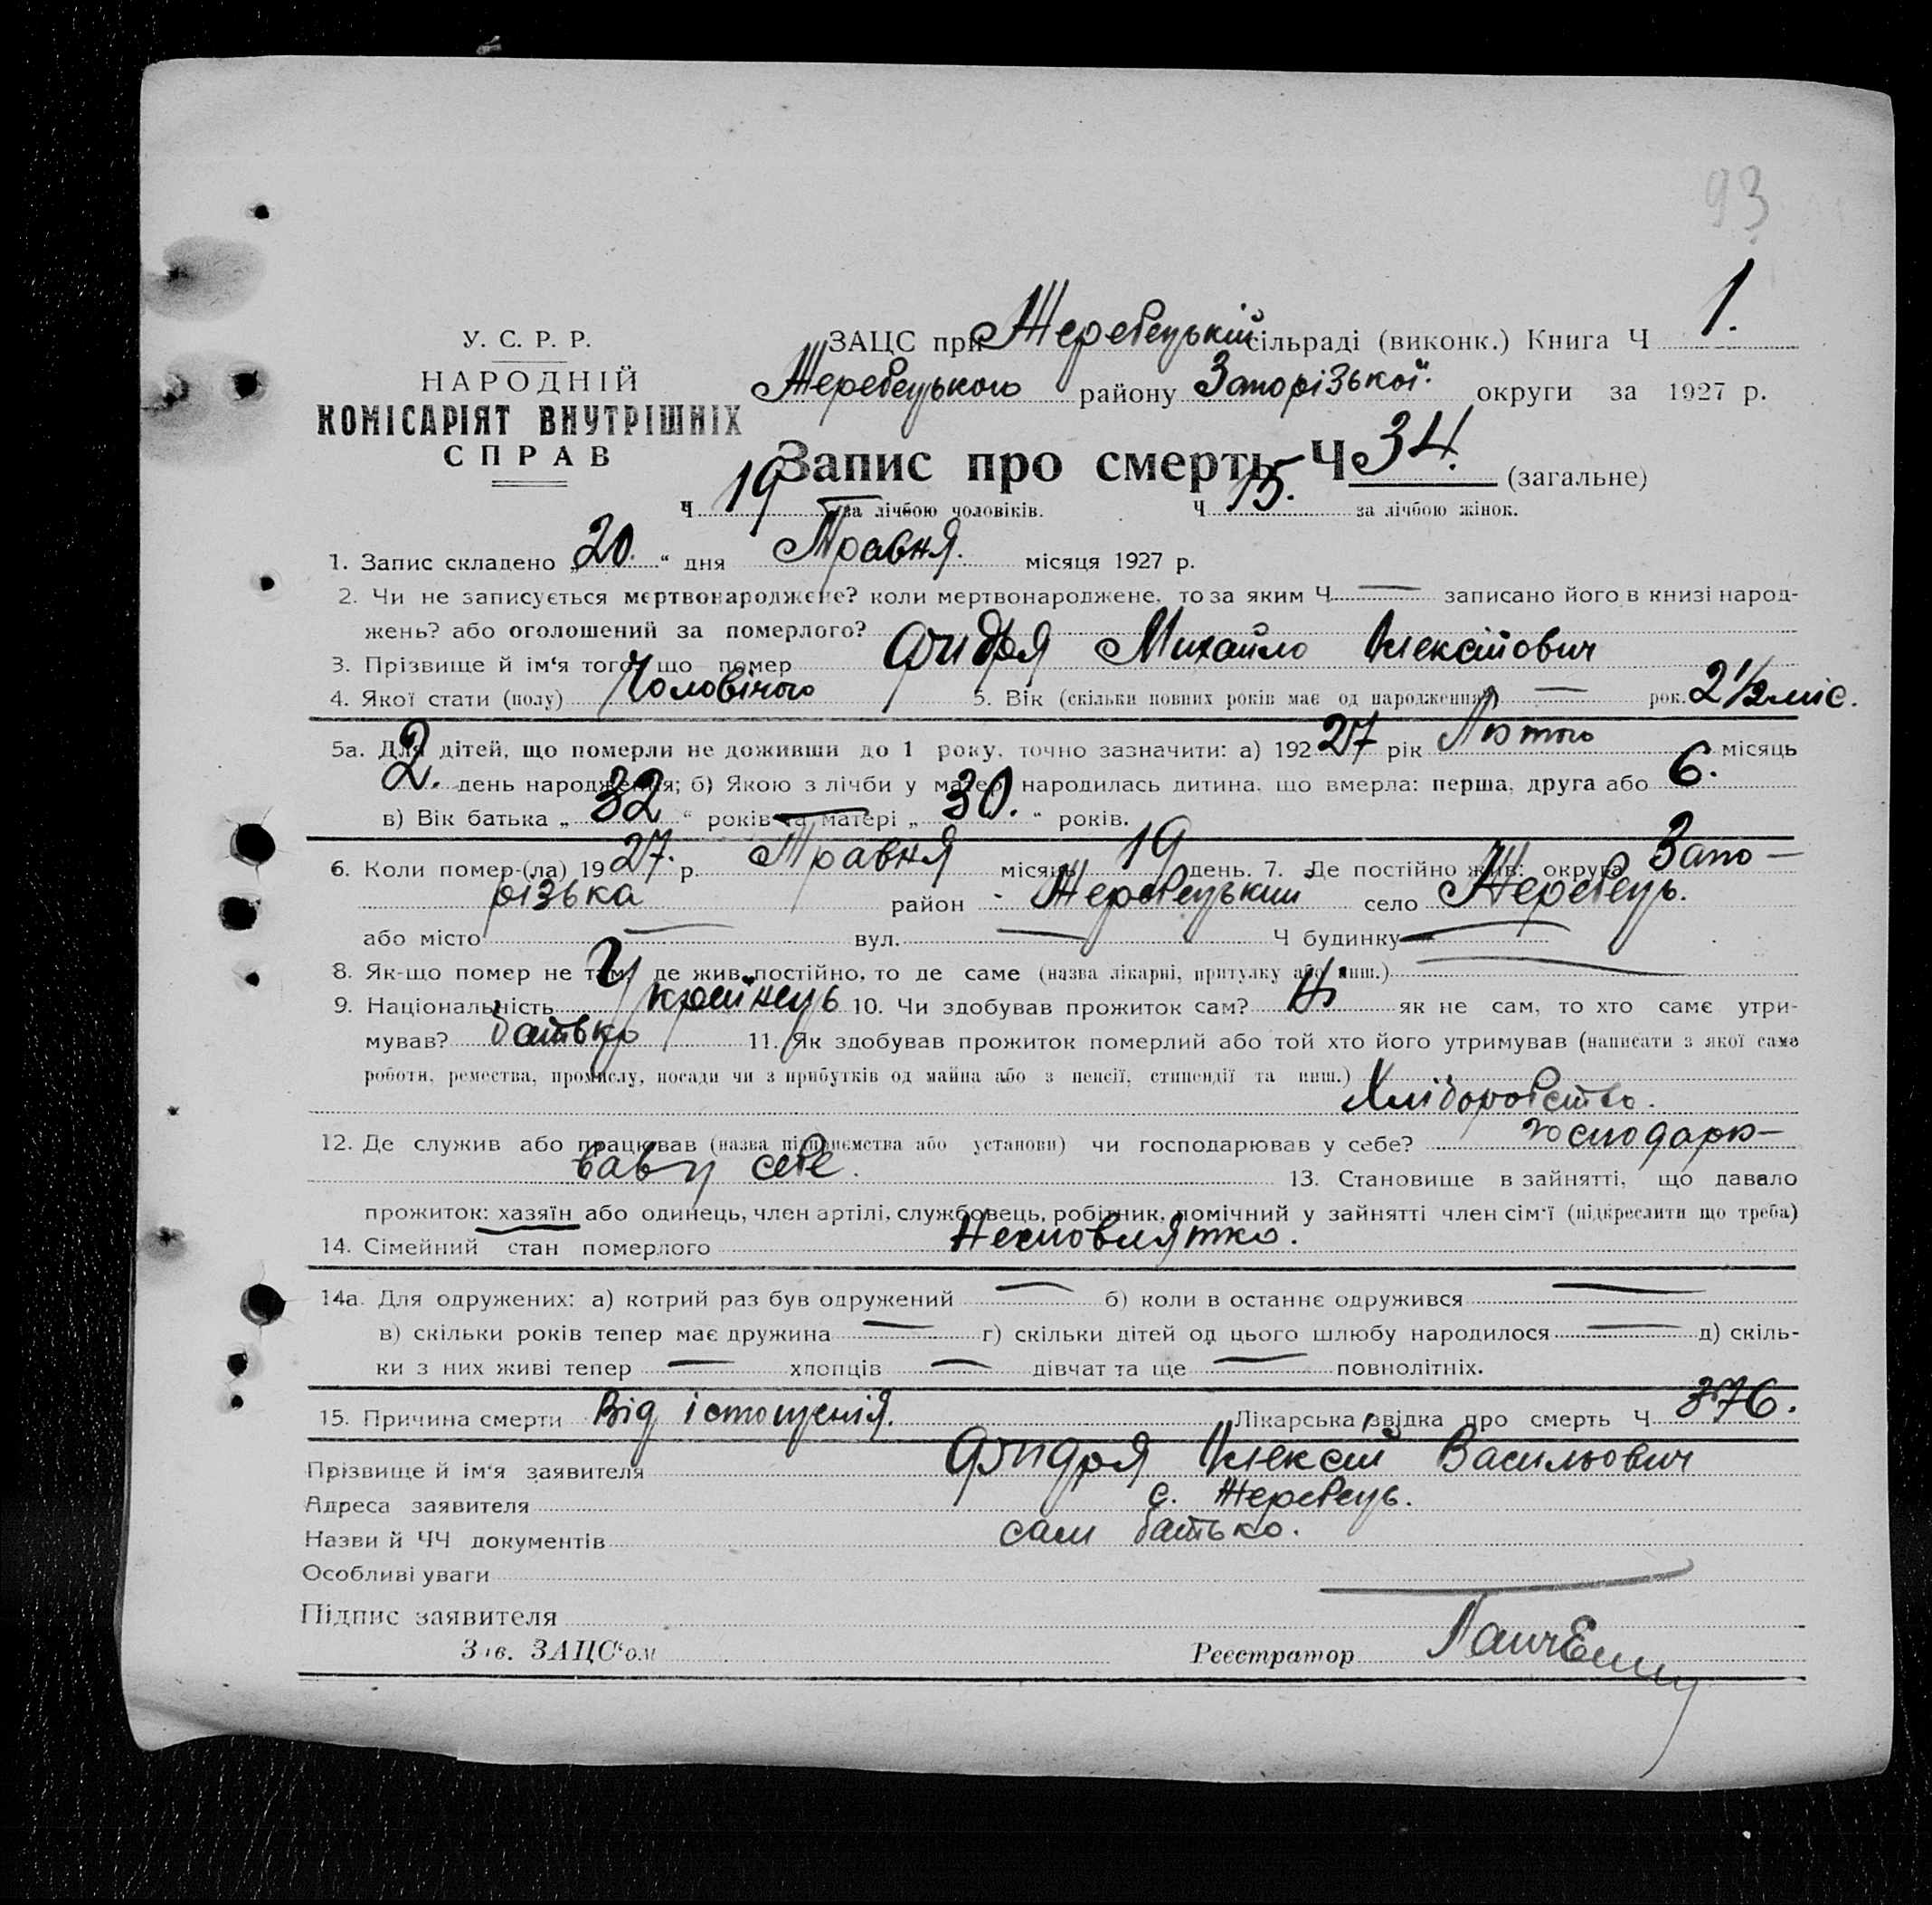 93
У. С. Р. Р.
НАРОДНІЙ
КОМІСАРІЯТ ВНУТРІШНІХ
СПРАВ
ЗАЦС при Жеребецькій сільраді (виконк.) Книга Ч 1.
Жеребецького району Запорізької округи за 1927 р.
Запис про смерть Ч 34. (загальне)
Ч 19 за лічбою чоловіків. Ч 15. за лічбою жінок.
1. Запис складено „20.“ дня Травня. місяця 1927 р.
2. Чи не записується мертвонароджене? коли мертвонароджене, то за яким Ч — записано його в книзі народ-
жень? або оголошений за померлого?
3. Прізвище й ім‘я того що помер Фидря Михайло Алексійович
4. Якої стати (полу) Чоловічого 5. Вік (скільки повних років має од народження) — рок. 2 1/2 міс.
5а. Для дітей, що померли не доживши до 1 року, точно зазначити: а) 192 27 рік Лютого місяць
2. день народження; б) Якою з лічби у матері народилась дитина, що вмерла: перша, друга або 6.
в) Вік батька „32“ років та матері „30.“ років.
6. Коли помер-(ла) 19 27. р. Травня місяць 19 день. 7. Де постійно жив: округа Запо-
різька район Жеребецький село Жеребець.
або місто — вул. — Ч будинку —
8. Як-що помер не там, де жив постійно, то де саме (назва лікарні, притулку або инш.) —
9. Національність Українець 10. Чи здобував прожиток сам? Ні як не сам, то хто саме утри-
мував? батько 11. Як здобував прожиток померлий або той хто його утримував (написати з якої саме
роботи, ремества, промислу, посади чи з прибутків од майна або з пенсії, стипендії та инш.)
Хліборобство.
12. Де служив або працював (назва підприємства або установи) чи господарював у себе? господарю-
вав у себе. 13. Становище в зайнятті, що давало
прожиток: хазяїн або одинець, член артілі, службовець, робітник, помічний у зайнятті член сім‘ї (підкреслити що треба)
14. Сімейний стан померлого Немовлятко.
14а. Для одружених: а) котрий раз був одружений — б) коли в останнє одружився —
в) скільки років тепер має дружина — г) скільки дітей од цього шлюбу народилося — д) скіль-
ки з них живі тепер — хлопців — дівчат та ще — повнолітніх.
15. Причина смерти Від істощенія. Лікарська звідка про смерть Ч 376.
Прізвище й ім‘я заявителя Фидря Алексій Васильович
Адреса заявителя с. Жеребець.
Назви й ЧЧ документів сам батько.
Особливі уваги —
Підпис заявителя
Зав. ЗАЦС‘ом Реєстратор